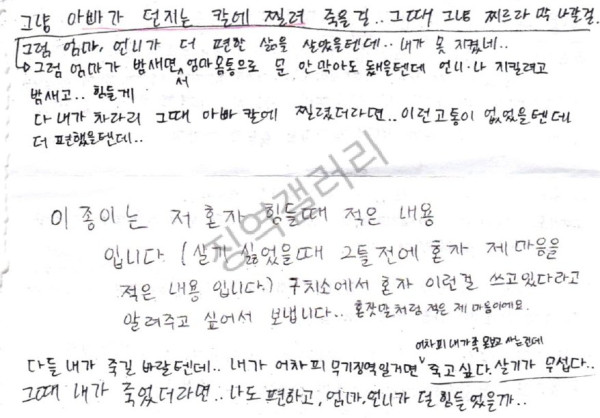 그냥 아빠가 던지는 칼에 찔려 죽을걸.. 그때 그냥 찌르라 막 나갈걸.
그럼 엄마, 언니가 더 편한 삶을 살았을텐데.. 내가 못 지켰네..
그럼 엄마가 밤새면서 엄마몸통으로 문 안막아도 됐을텐데 언니·나 지킬려고
밤새고.. 힘들게
다 내가 차라리 그때 아빠 칼에 찔렸더라면.. 이런고통이 없었을텐데
더 편했을텐데..
징역갤러리
이 종이는 저 혼자 힘들때 적은 내용
입니다 (살기 싫었을때 2틀전에 혼자 제 마음을
적은 내용 입니다.) 구치소에서 혼자 이런걸 쓰고있다라고
알려주고 싶어서 보냅니다.. 혼잣말처럼 적은 제 마음이에요.
다들 내가 죽길 바랄텐데.. 내가 어차피 무기징역일거면 죽고싶다 살기가 무섭다..
어차피 내가족 못보고 사는건데
그때 내가 죽었더라면.. 나도 편하고, 엄마,언니가 덜 힘들었을까..